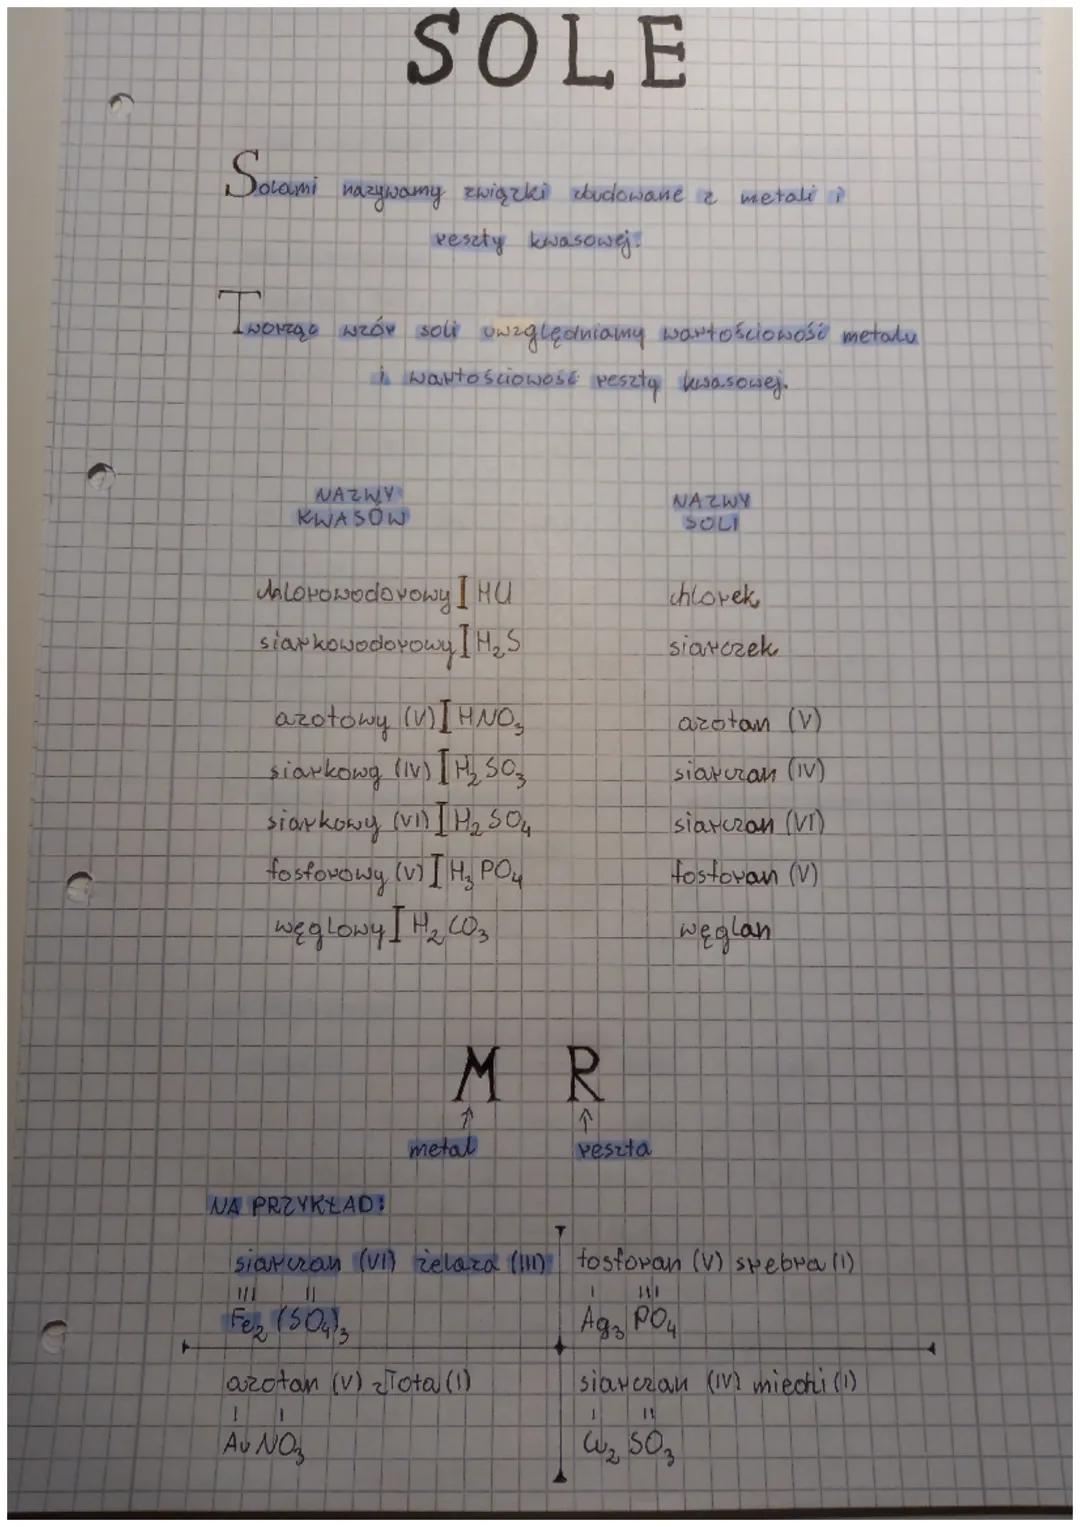 SOLE
Solami nazywamy związki zbudowane z metali i
reszty kwasowej.
Tworząc wzór soli uwzględniamy wartościowość metalu
i wartościowość reszty kwasowej.
NAZWY
KWASÓW
NAZWY
SOLI
chlorowodorowy I HCl
chlorek
siarkowodorowy I H₂S
siarczek
azotowy (V) I HNO₃
azotan (V)
siarkowy (IV) I H₂SO₃
siarczan (IV)
siarkowy (VI) I H₂SO₄
siarczan (VI)
fosforowy (V) I H₃PO₄
fosforan (V)
węglowy I H₂CO₃
węglan
M R
metal reszta
NA PRZYKŁAD:
siarczan (VI) żelaza (III)
III II
Fe₂(SO₄)₃
fosforan (V) srebra (I)
I III
Ag₃PO₄
azotan (V) złota (I)
I I
AuNO₃
siarczan (IV) miedzi (I)
I II
Cu₂SO₃